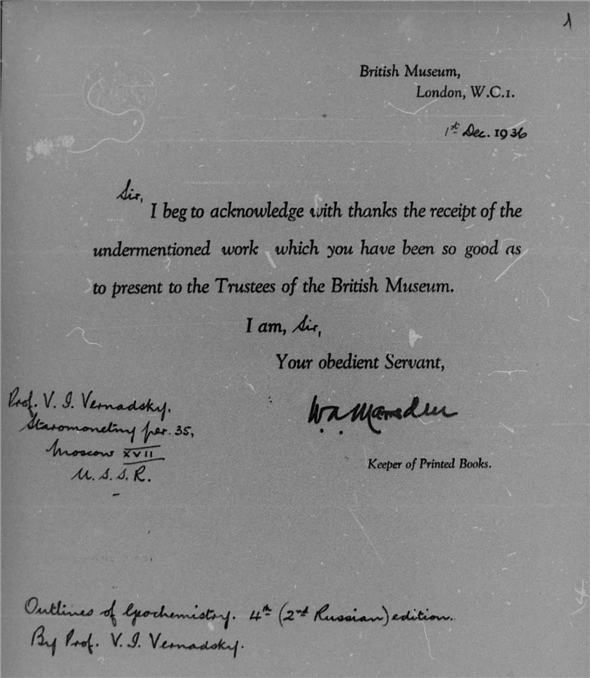 1
British Museum,
London, W.C.1.
1st Dec. 1936
Sir,
I beg to acknowledge with thanks the receipt of the
undermentioned work which you have been so good as
to present to the Trustees of the British Museum.
I am, Sir,
Your obedient Servant,
W.A. Marsden
Keeper of Printed Books.
Prof. V. I. Vernadsky,
Staromonetny per. 35,
Moscow XVII
U. S. S. R.
Outlines of Geochemistry. 4th (2nd Russian) edition.
By Prof. V. I. Vernadsky.